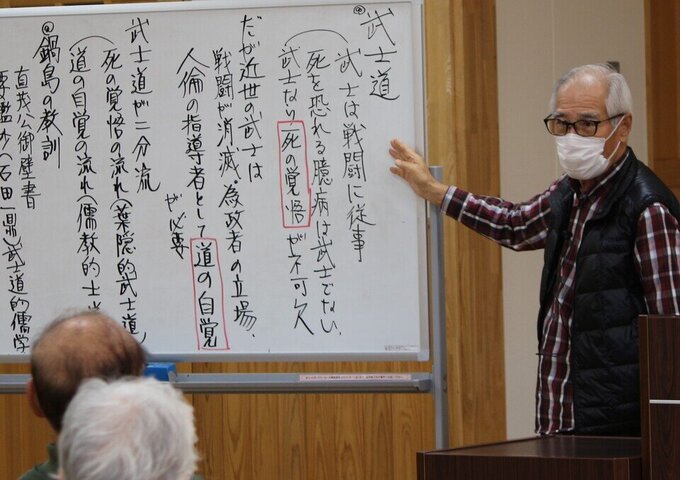 武士道
武士は戦闘に従事
死を恐れる臆病は武士でない、
武士なり、死の覚悟が不可欠
だが近世の武士は
戦闘が消滅・為政者の立場、
人倫の指導者として道の自覚
が必要
武士道が二分流
死の覚悟の流れ（葉隠的武士道）
道の自覚の流れ（儒教的士
鍋島の教訓
直茂公御壁書
石田一鼎 武士道的儒学